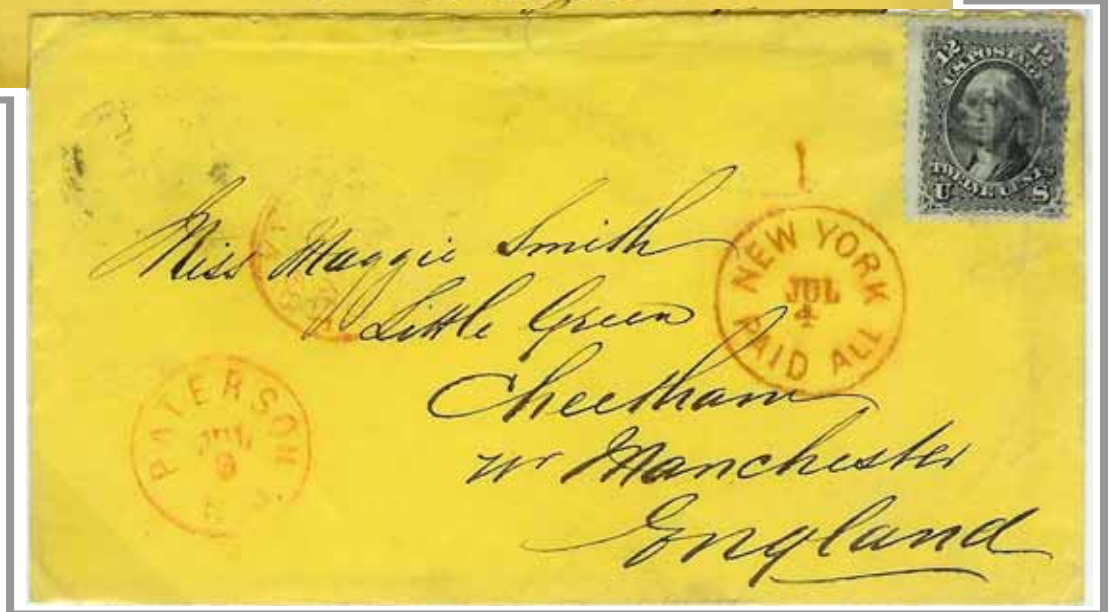 12 12
U.S. POSTAGE
TWELVE CENTS
U S
Miss Maggie Smith
Little Green
Cheetham
nr Manchester
England
NEW YORK
JUL
4
PAID ALL
PATERSON
JUL
N